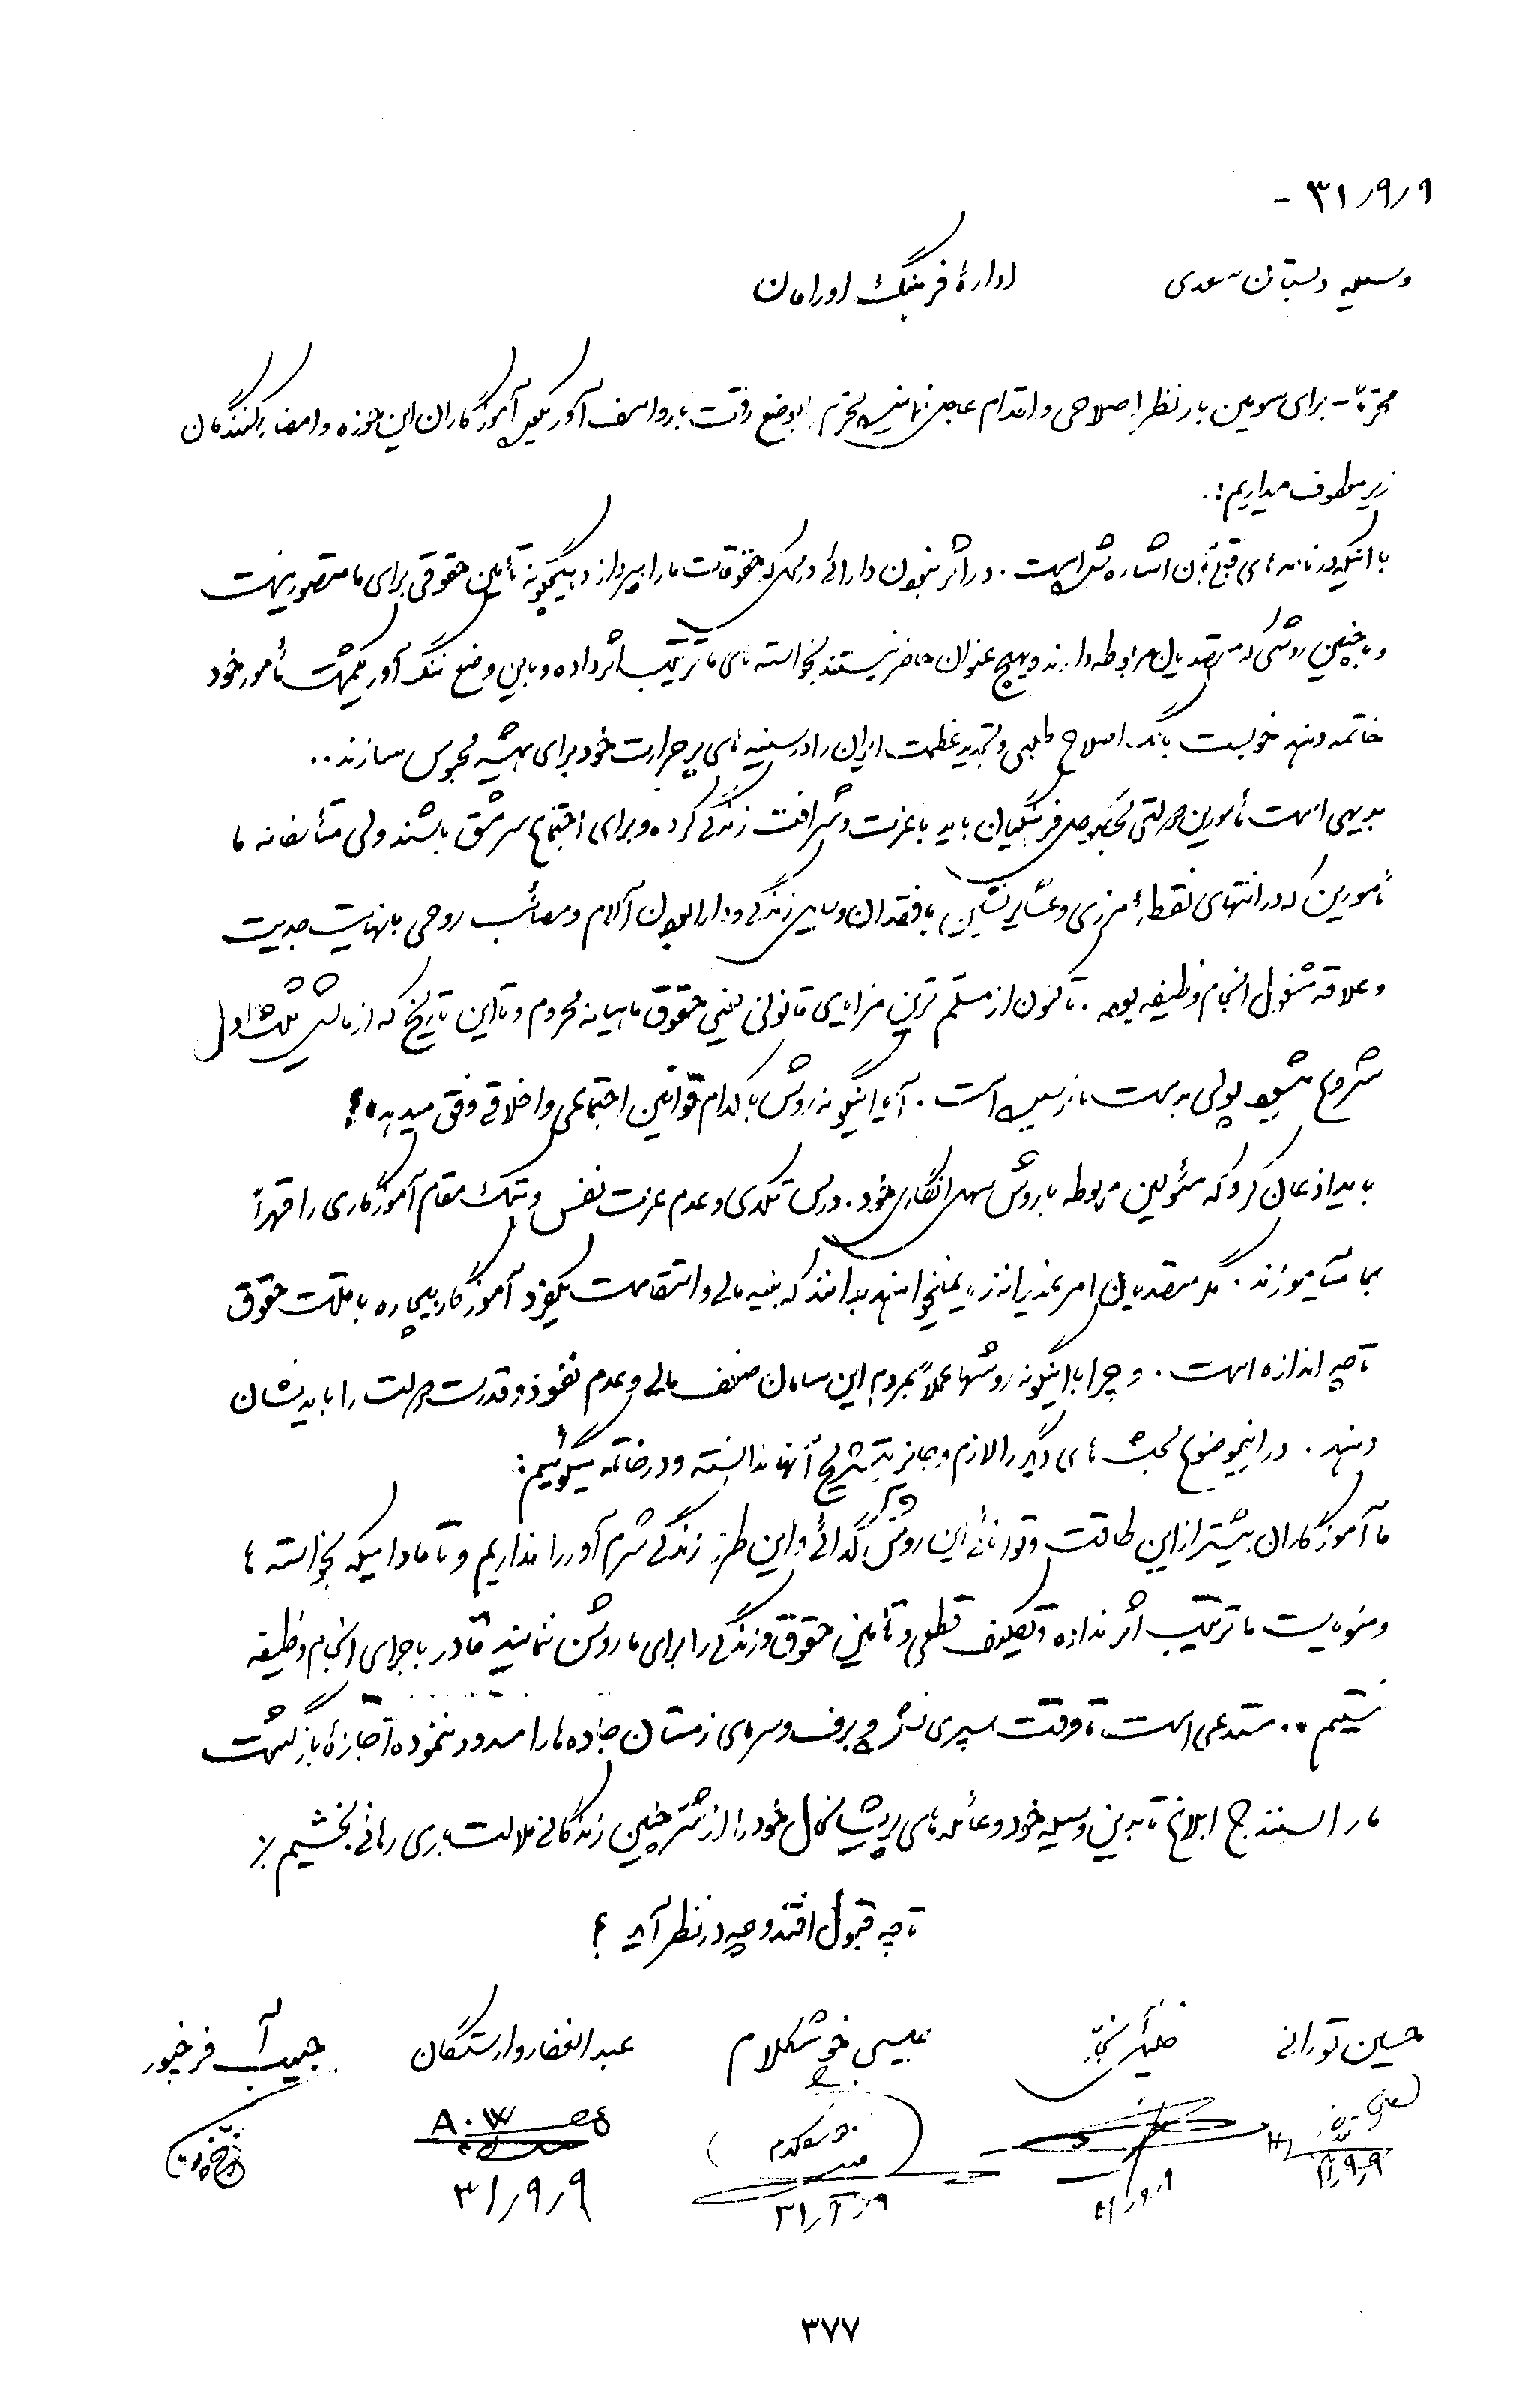 ۳۱/۹/۹ -
وسیله دبستان سعدی ادارهٔ فرهنگ اورامان
محترماً - برای سومین بار نظر اصلاحی و اقدام عاجل نماینده محترم بوضع رقت بار و اسف آور یکعده آموزگاران این حوزه و امضاء کنندگان
زیر معطوف میداریم:.
با اینکه در نامه های قبلی بآن اشاره شده است . در اثر نبودن دارائی در محل که حقوقات ما را بپردازد بهیچگونه تأمین حقوقی برای ما متصور نیست
و با چنین روشی که متصدیان مربوطه دارند و بهیچ عنوان حاضر نیستند بخواسته های ما ترتیب اثر داده و باین وضع ننگ آور یکمشت مأمور خود
خاتمه دهند خوبست بانگ اصلاح طلبی و تجدید عظمت ایران را در سینه های پر حرارت خود برای همیشه محبوس سازند ..
بدیهی است مأمورین دولتی بخصوص فرهنگیان باید با عزت و شرافت زندگی کرده و برای اجتماع سرمشق باشند ولی متأسفانه ما
مأمورین که در انتهای نقطهٔ مرزی و عشایر نشین با فقدان وسایل زندگی و دارا بودن آلام و مصائب روحی با نهایت جدیت
و علاقه مشغول انجام وظیفه بوده . تا کنون از مسلم ترین مزایای قانونی یعنی حقوق ماهیانه محروم و تا این تاریخ که از ثلث اول
شروع میشود پولی بدست ما نرسیده است . آیا اینگونه روش با کدام قوانین اجتماعی و اخلاقی وفق میدهد؟
باید اذعان کرد که مسئولین مربوطه با روش سهل انگاری خود . درس تکدی و عدم عزت نفس و هتک مقام آموزگاری را قهراً
بما میآموزند . مگر متصدیان امر نمیدانند یا نمیخواهند بدانند که بنیه مالی و استقامت یکفرد آموزگار بیچاره با قلت حقوق
تا چه اندازه است . و چرا با اینگونه روشها عملاً بمردم این سامان ضعف مالی و عدم نفوذ و قدرت دولت را باید نشان
دهند . در اینموضوع بحث های دیگر را لازم و مجاز بتشریح آنها ندانسته و در خاتمه میگوئیم:
ما آموزگاران بیشتر از این طاقت و توانائی این روش گدائی و این طرز زندگی شرم آور را نداریم و تا مادامیکه بخواسته ها
و منویات ما ترتیب اثر نداده و تکلیف قطعی و تأمین حقوق و زندگی را برای ما روشن ننمایند قادر باجرای انجام وظیفه
نیستیم .. مستدعی است تا وقت سپری نشده و برف و سرمای زمستان جاده ها را مسدود ننموده اجازهٔ بازگشت
ما را بسنندج ابلاغ تا بدین وسیله خود و عائله های پریشانحال خود را از شر چنین زندگانی ملالت باری رهائی بخشیم ./
تا چه قبول افتد و چه در نظر آید ؟
حسین تورانی عیسی خوشکلام عبدالغفار وارستگان حبیب آ. فرخپور
۳۱/۹/۹ ۳۱/۹/۹ ۳۱/۹/۹ ۳۱/۹/۹
۳۷۷